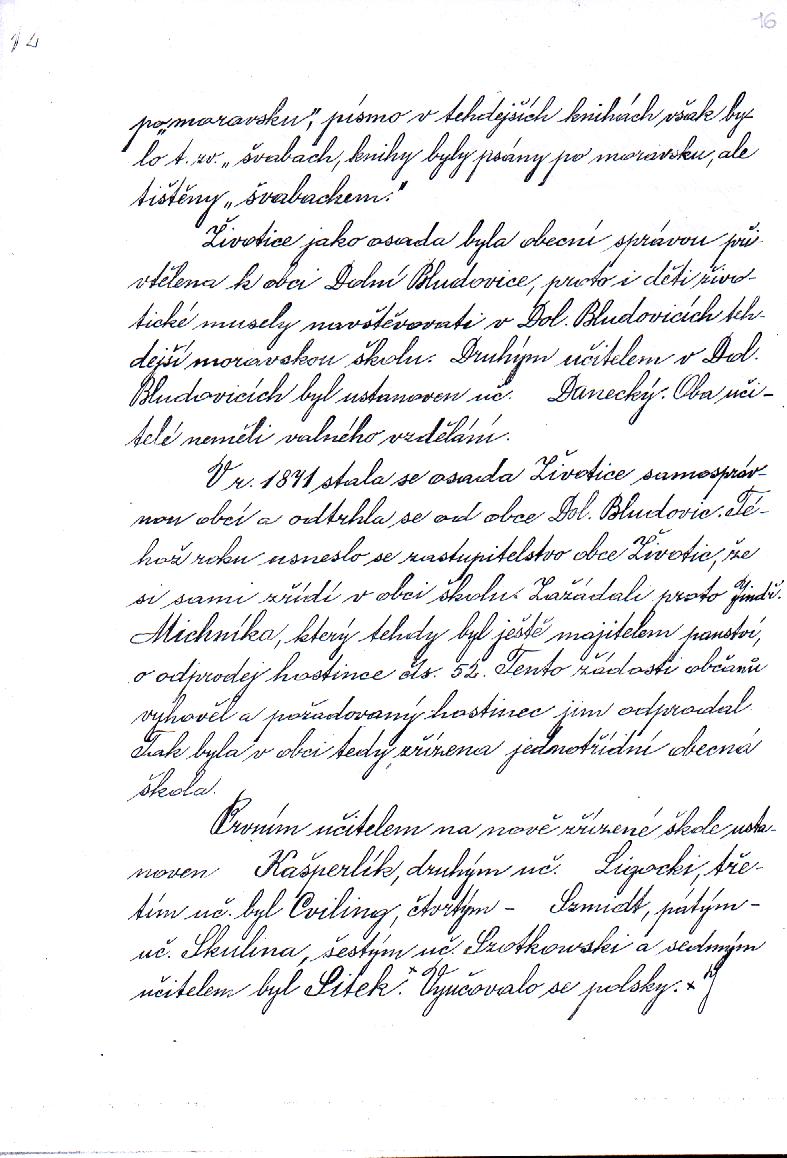 16
14
po „moravsku", písmo v tehdejších knihách však by-
lo t. zv. „švabach, knihy byly psány po moravsku, ale
tištěny „švabachem."
Životice jako osada byla obecní správou při-
vtělena k obci Dolní Bludovice, proto i děti živo-
tické musely navštěvovati v Dol. Bludovicích teh-
dejší moravskou školu. Druhým učitelem v Dol.
Bludovicích byl ustanoven uč. Danecký. Oba uči-
telé neměli valného vzdělání.
V r. 1871 stala se osada Životice samospráv-
nou obcí a odtrhla se od obce Dol. Bludovic. Té-
hož roku usneslo se zastupitelstvo obce Životic, že
si sami zřídí v obci školu. Zažádali proto Jindř.
Michníka, který tehdy byl ještě majitelem panství,
o odprodej hostince čís. 52. Tento žádosti občanů
vyhověl a požadovaný hostinec jim odprodal.
Tak byla v obci tedy zřízena jednotřídní obecná
škola.
Prvním učitelem na nově zřízené škole usta-
noven Kašperlík, druhým uč. Ligocki, tře-
tím uč. byl Cviling, čtvrtým - Szmidt, pátým -
uč. Skulina, šestým uč. Szotkowski a sedmým
učitelem byl Sitek.x Vyučovalo se polsky. x